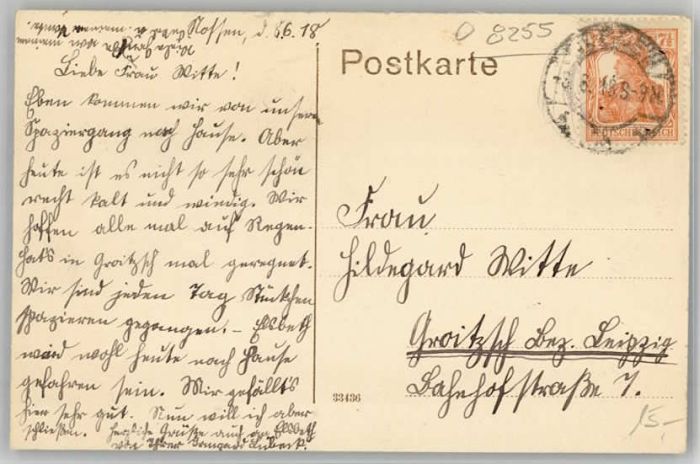 Nossen, d. 8.6.18
Liebe Frau Witte!
Eben kommen wir von unserm
Spaziergang nach Hause. Aber
heute ist es nicht so sehr schön
recht kalt und windig. Wir
hoffen alle mal auf Regen.
Hat's in Groitzsch mal geregnet.
Wir sind jeden Tag Stückchen
spazieren gegangen. – Elsbeth
wird wohl heute nach Hause
gefahren sein. Mir gefällt's
hier sehr gut. Nun will ich aber
schließen. Herzliche Grüße auch an Elsbeth
von Ihrer Irmgard Lübeck.
O 8255
Postkarte
7½
DEUTSCHES REICH
Frau
Hildegard Witte
Groitzsch Bez. Leipzig
Bahnhofstraße 7.
33486
15.-